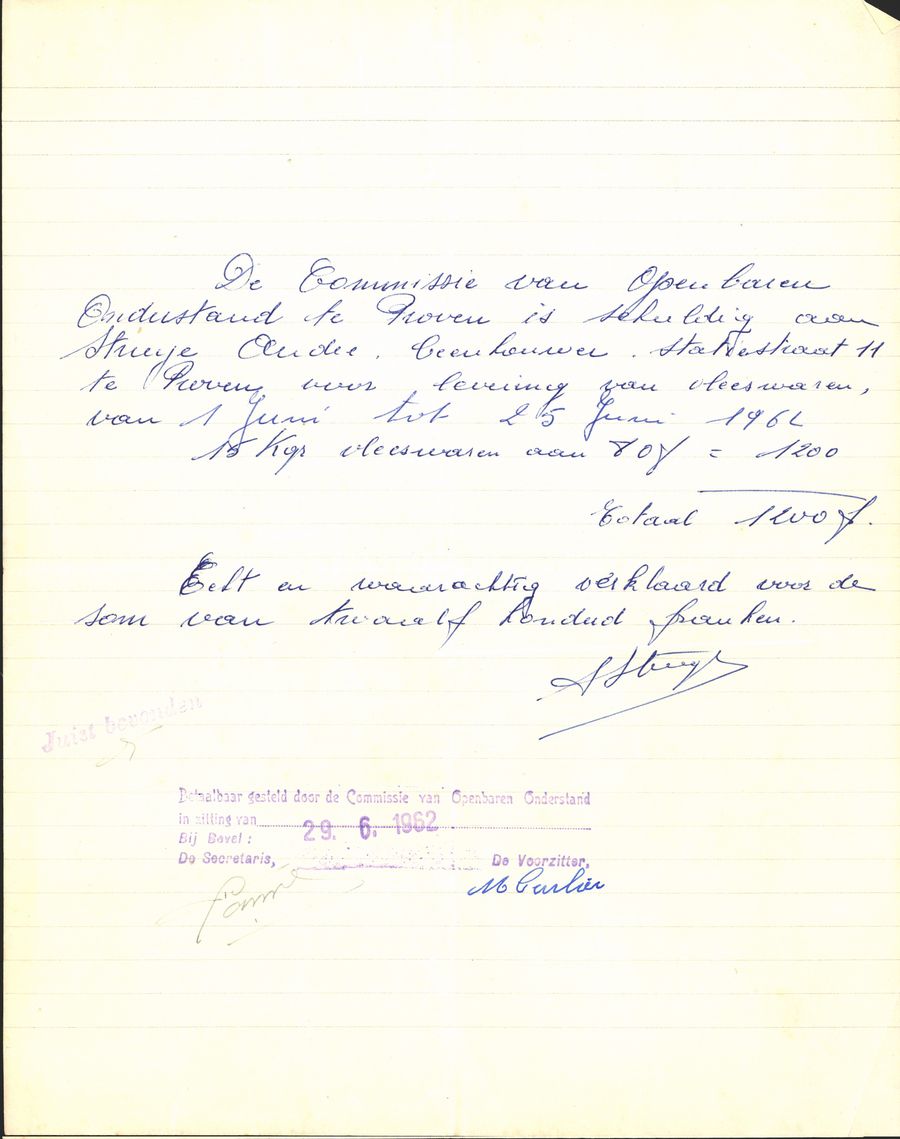 De Commissie van Openbaren
Onderstand te Proven is schuldig aan
Struye André. beenhouwer. statiestraat 11
te Proven voor levering van vleeswaren,
van 1 Juni tot 25 Juni 1962
15 Kgr vleeswaren aan 80f = 1200
Totaal 1200 f.
Echt en waarachtig verklaard voor de
som van twaalf honderd franken.
A Struye
Juist bevonden
Betaalbaar gesteld door de Commissie van Openbaren Onderstand
in zitting van 29. 6. 1962
Bij Bevel:
De Secretaris, De Voorzitter,